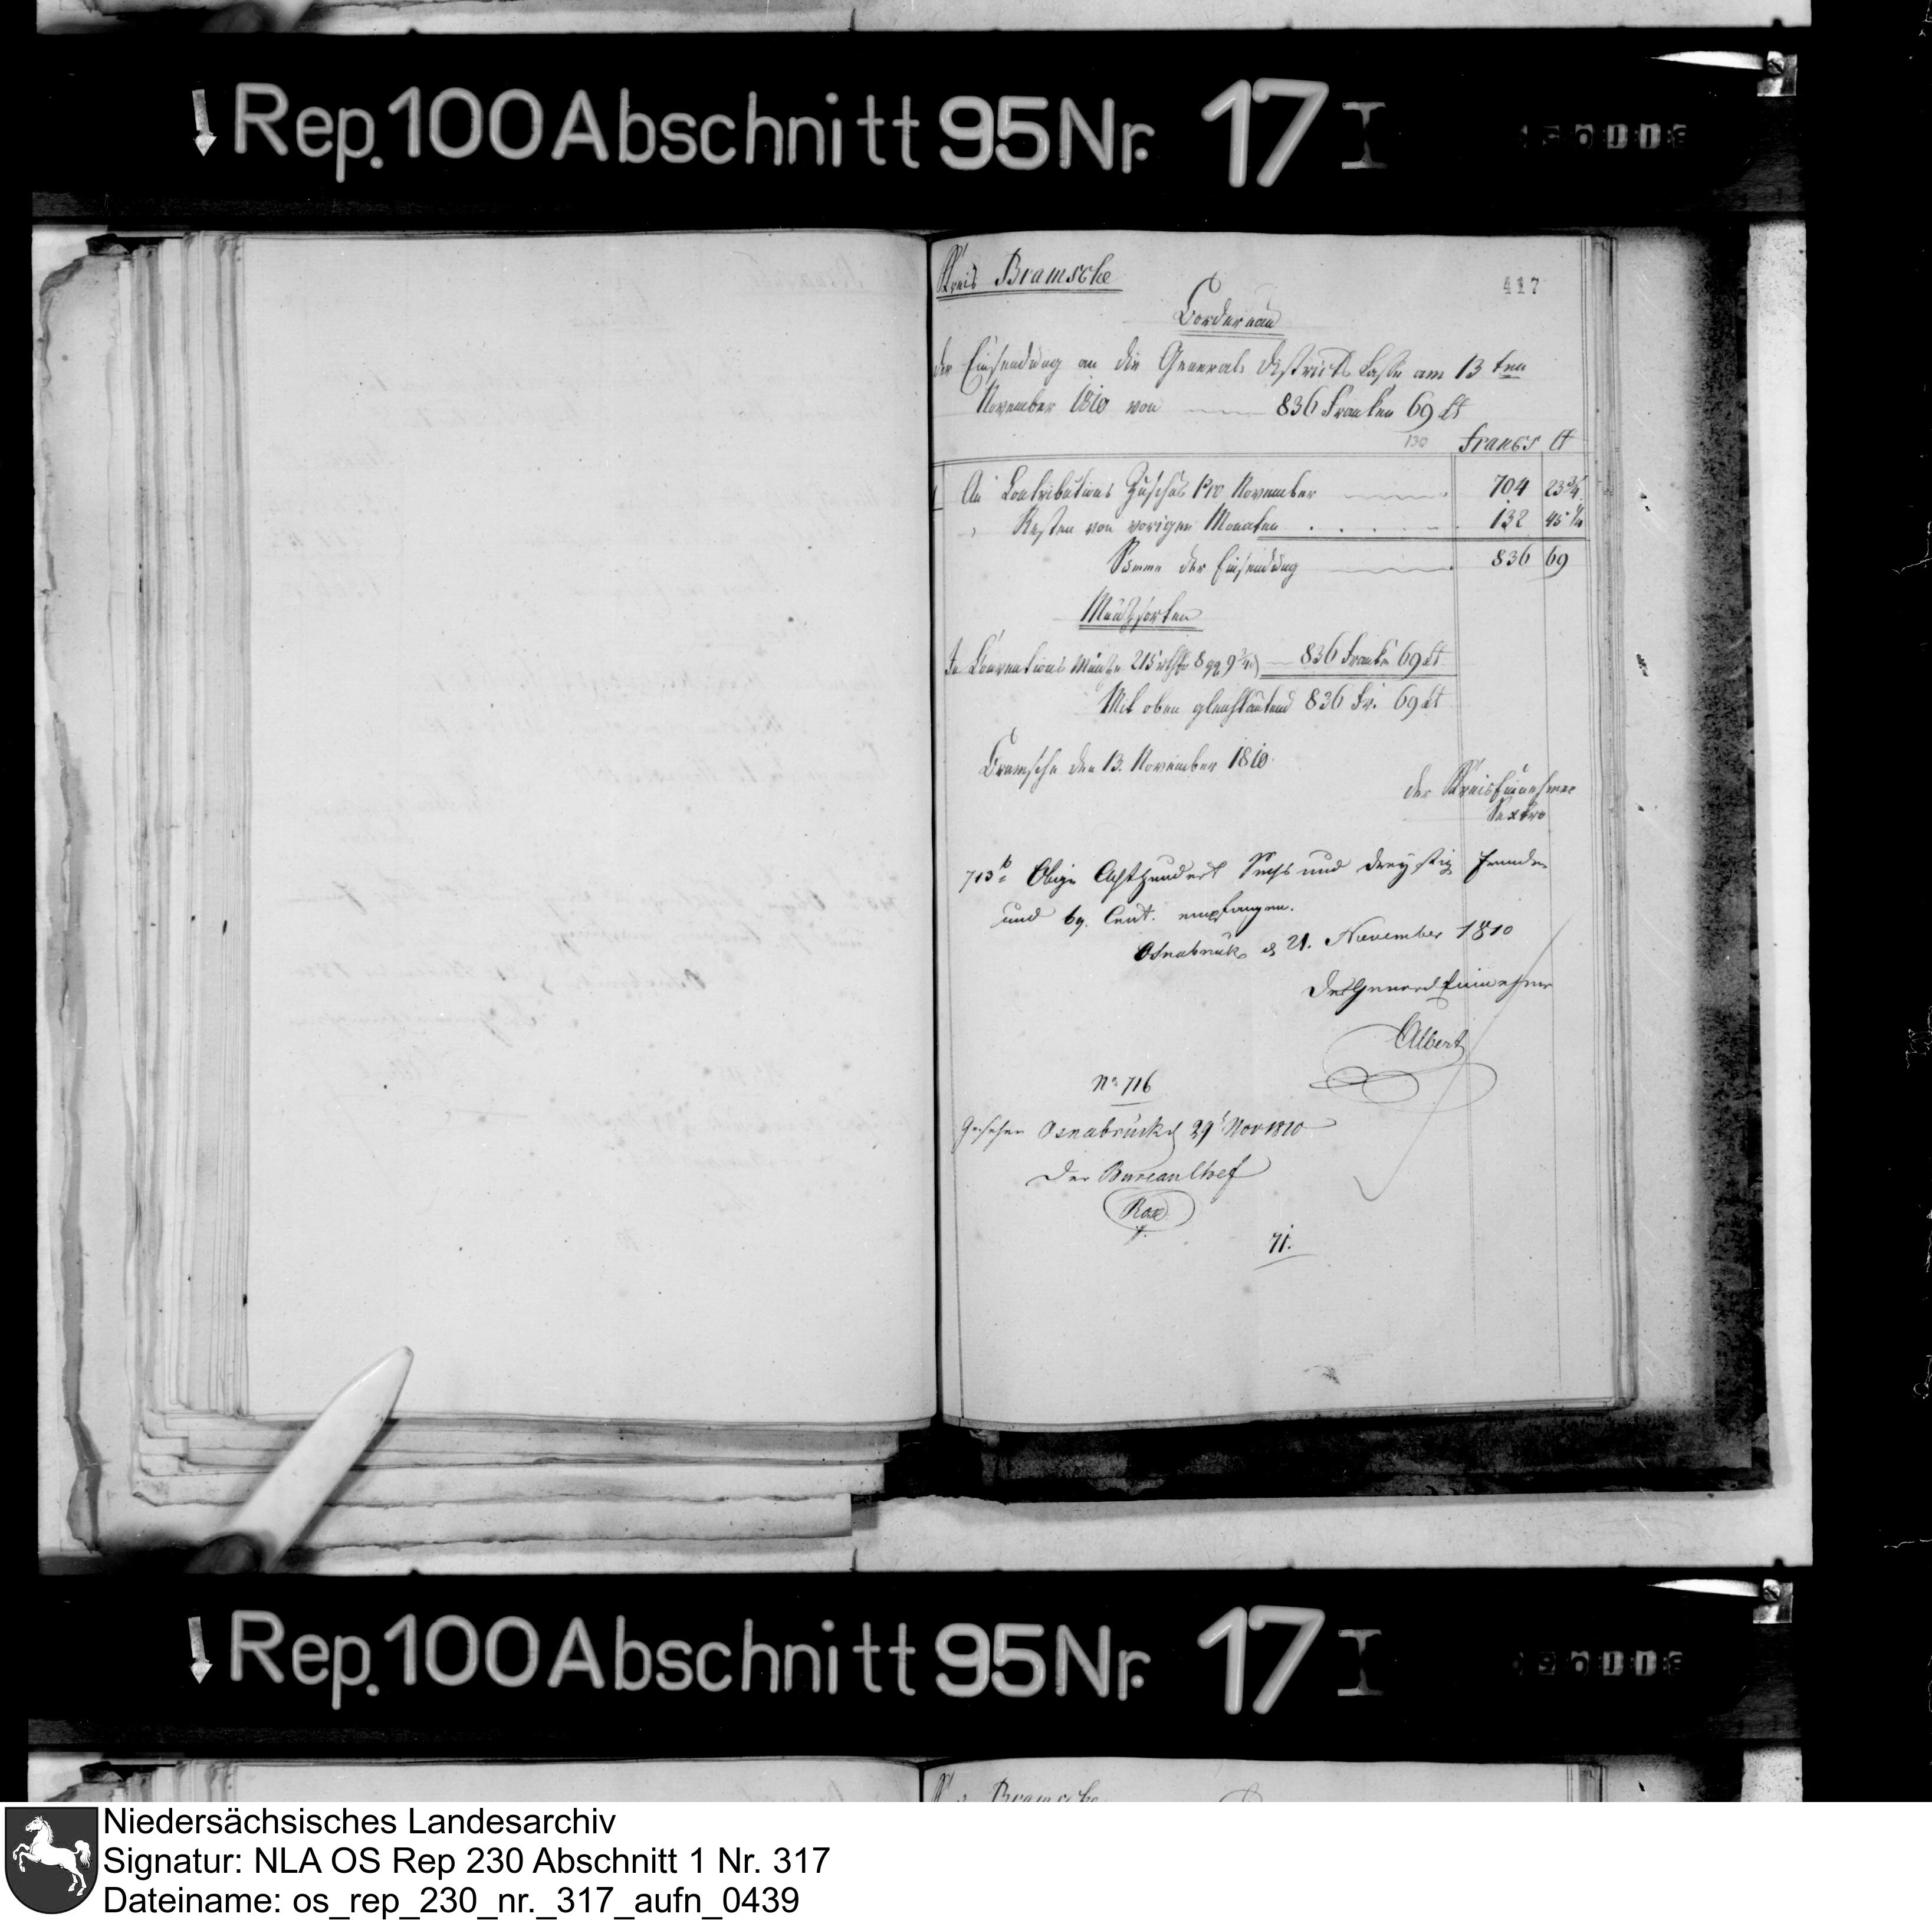 Rep. 100 Abschnitt 95 Nr. 17 I
Kreis Bramsche
417
Bordereau
der Einsendung an die General Districts Casse am 13 ten
November 1810 von 836 Franken 69 Ct
130 francs Ct
An Contributions Zuschus pro November 704 23 3/4
" Resten von vorigen Monaten 132 45 1/4
Summe der Einsendung 836 69
Münzsorten
In Conventions Münze 215 rthlr 8 gg 9 836 Franken 69 Ct
Mit oben gleichlautend 836 Fr. 69 Ct
Bramsche den 13. November 1810.
der Kreiseinnehmer
Sextro
713 Obige Achthundert Sechs und dreyßig Franken
und 69. Cent. empfangen.
Osnabrück d 21. November 1810
Der General Einnehmer
Albert
No 716
Gesehen Osnabrück d 29 Nov 1810
Der Bureau Chef
Rose
71.
Rep. 100 Abschnitt 95 Nr. 17 I
Bramsche
Niedersächsisches Landesarchiv
Signatur: NLA OS Rep 230 Abschnitt 1 Nr. 317
Dateiname: os_rep_230_nr._317_aufn_0439